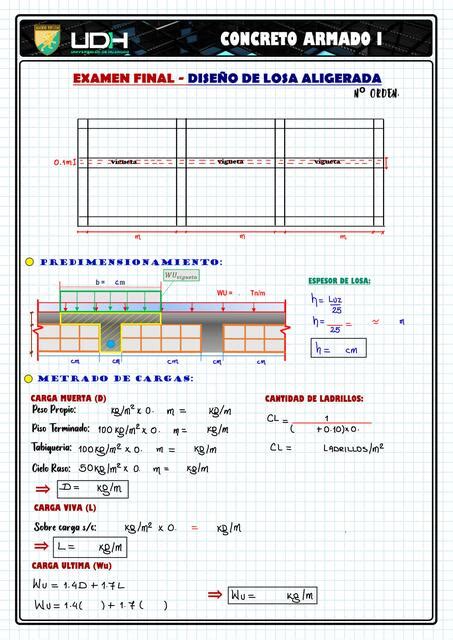 UDH
CONCRETO ARMADO I
EXAMEN FINAL - DISEÑO DE LOSA ALIGERADA
Nº ORDEN.
0.1m
vigueta vigueta vigueta
m m m
PREDIMENSIONAMIENTO:
b = cm
WU vigueta
WU = . Tn/m
cm cm cm cm
ESPESOR DE LOSA:
h = Luz
25
h = = ≈ m
25
h = cm
METRADO DE CARGAS:
CARGA MUERTA (D)
Peso Propio: kg/m² x 0. m = kg/m
Piso Terminado: 100 kg/m² x 0. m = kg/m
Tabiqueria: 100 kg/m² x 0. m = kg/m
Cielo Raso: 50 kg/m² x 0. m = kg/m
⇒ D = kg/m
CANTIDAD DE LADRILLOS:
CL = 1
( +0.10)x0.
CL = LADRILLOS/m²
CARGA VIVA (L)
Sobre carga s/c: kg/m² x 0. = kg/m
⇒ L = kg/m
CARGA ULTIMA (Wu)
Wu = 1.4D + 1.7L
Wu = 1.4( ) + 1.7( )
⇒ Wu = kg/m